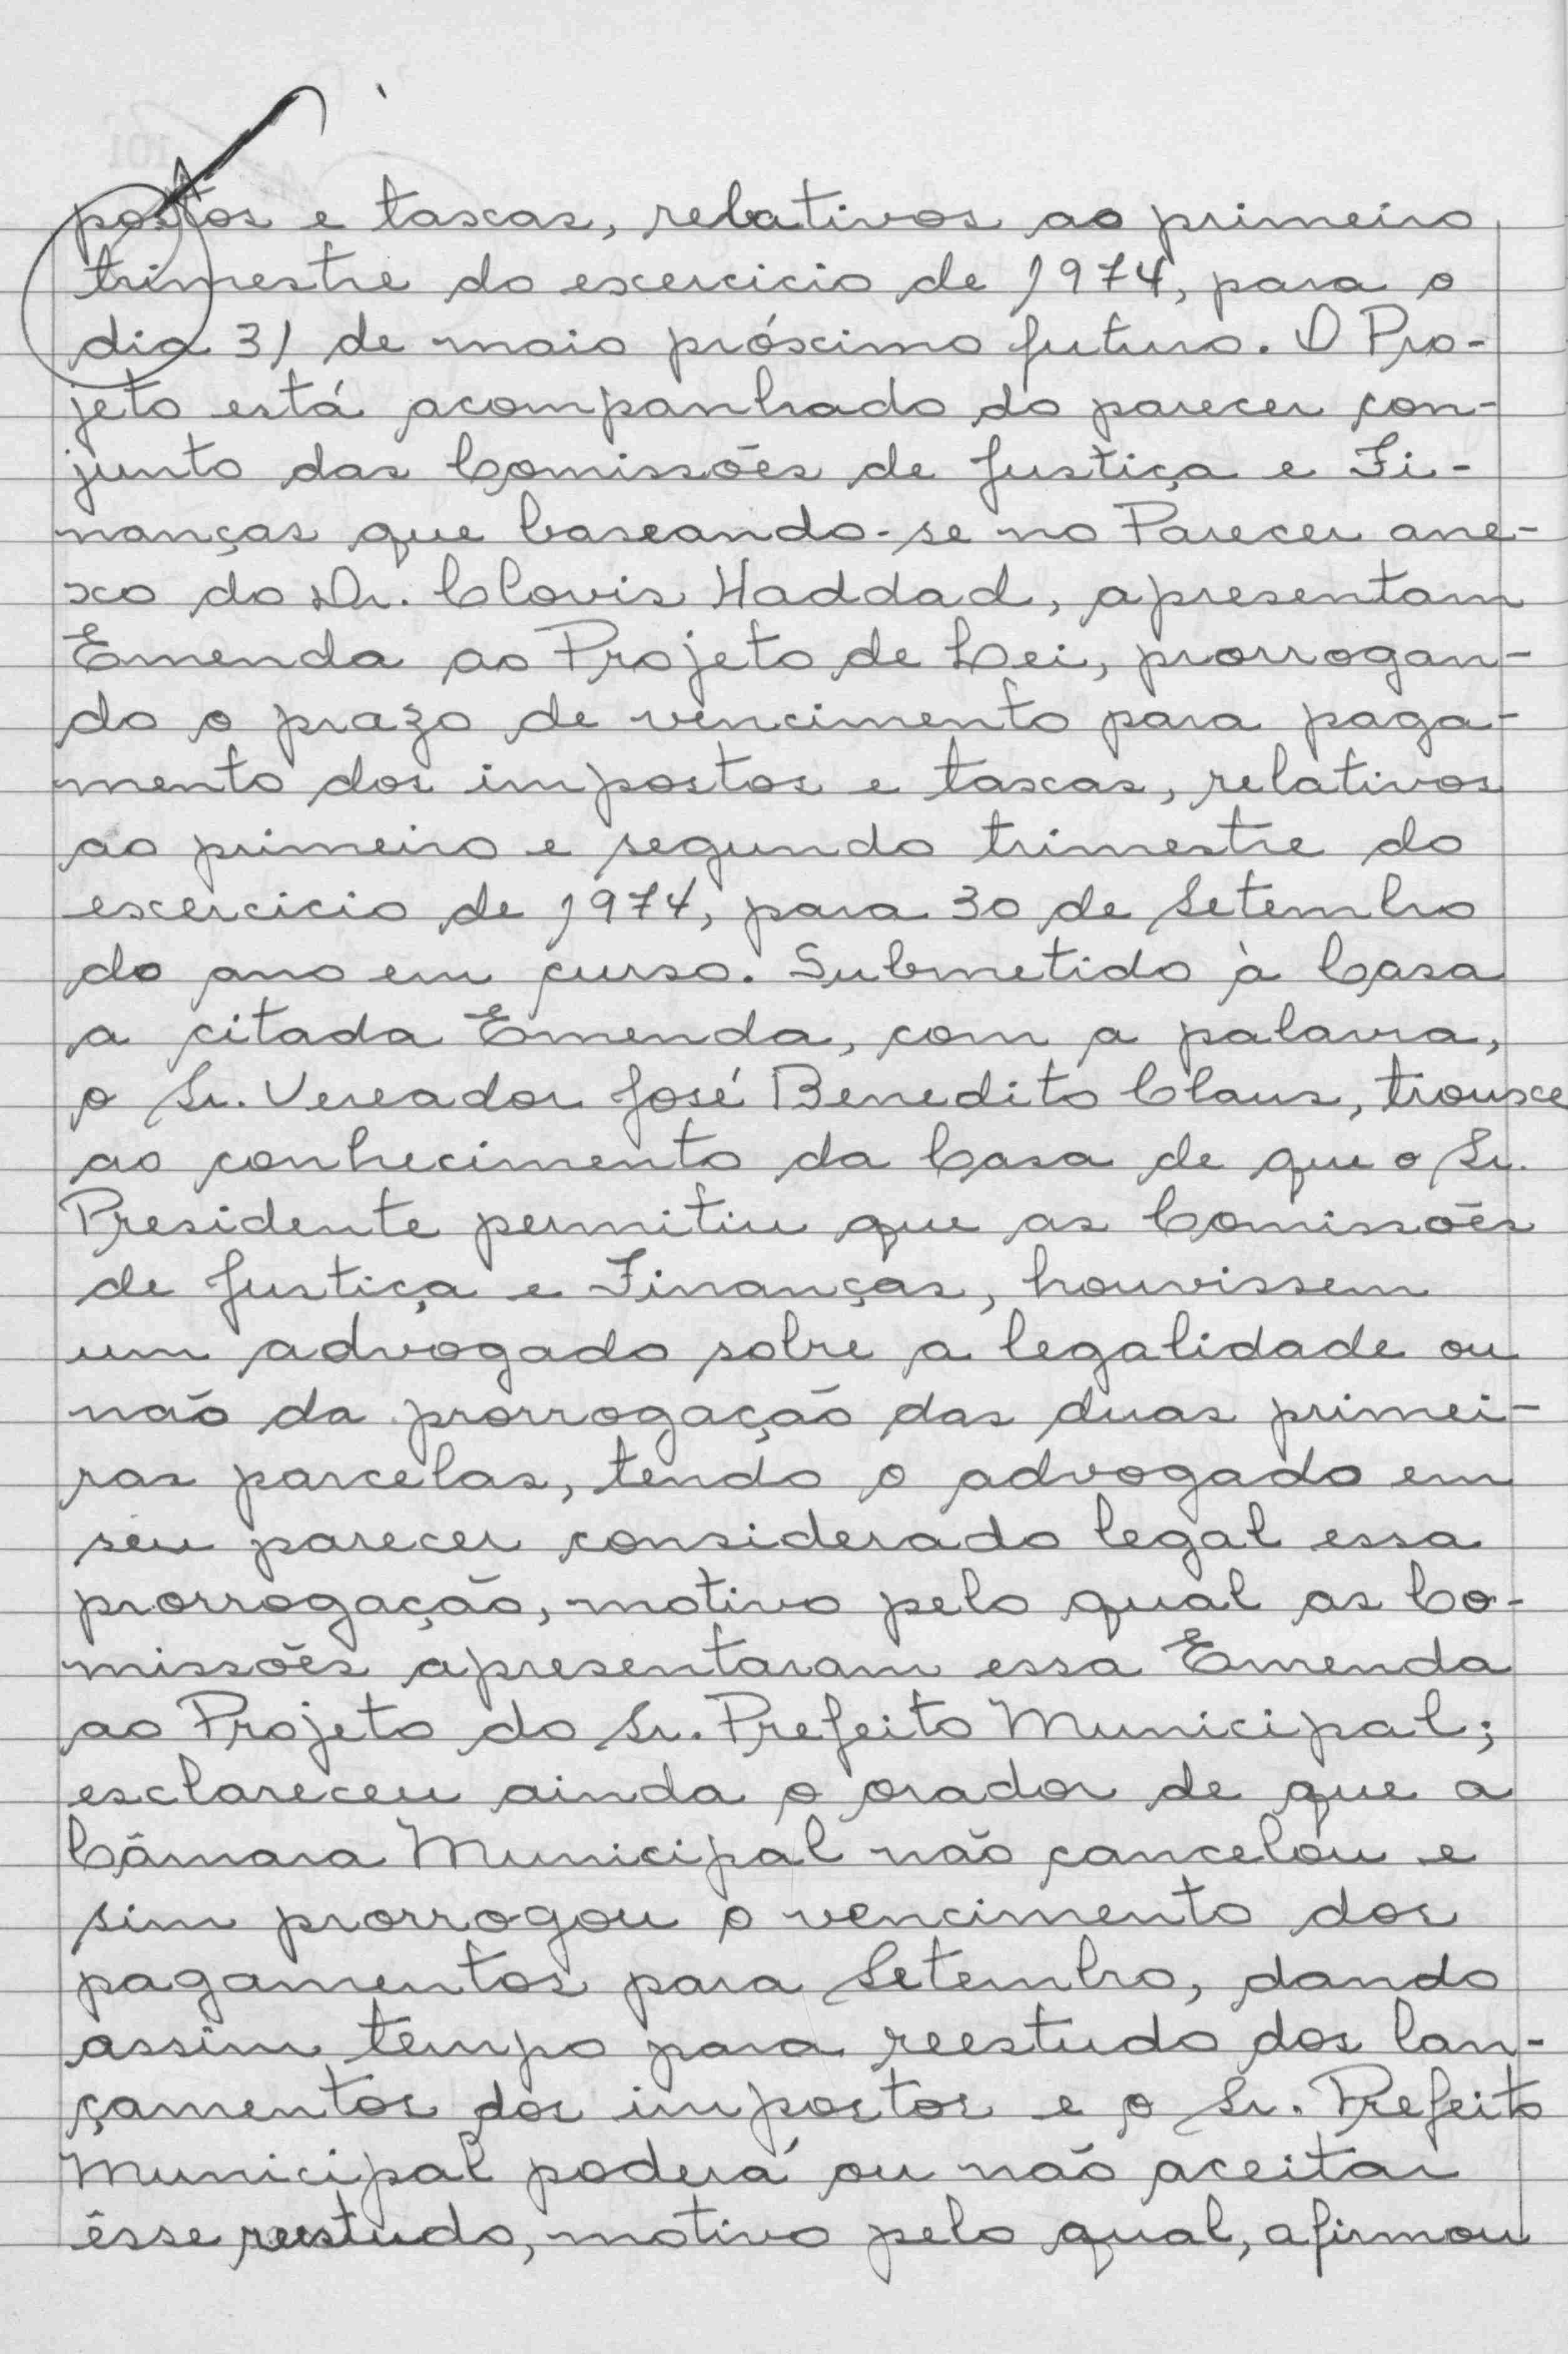 postos e taxas, relativos ao primeiro
trimestre do exercicio de 1974, para o
dia 31 de maio próximo futuro. O Pro-
jeto está acompanhado do parecer con-
junto das Comissões de Justiça e Fi-
nanças que baseando-se no Parecer ane-
xo do Dr. Clovis Haddad, apresentam
Emenda ao Projeto de Lei, prorrogan-
do o prazo de vencimento para paga-
mento dos impostos e taxas, relativos
ao primeiro e segundo trimestre do
exercicio de 1974, para 30 de Setembro
do ano em curso. Submetido à Casa
a citada Emenda, com a palavra,
o Sr. Vereador José Benedito Claus, trouxe
ao conhecimento da Casa de que o Sr.
Presidente permitiu que as Comissões
de Justiça e Finanças, houvissem
um advogado sobre a legalidade ou
não da prorrogação das duas primei-
ras parcelas, tendo o advogado em
seu parecer considerado legal essa
prorrogação, motivo pelo qual as Co-
missões apresentaram essa Emenda
ao Projeto do Sr. Prefeito Municipal;
esclareceu ainda o orador de que a
Câmara Municipal não cancelou e
sim prorrogou o vencimento dos
pagamentos para Setembro, dando
assim tempo para reestudo dos lan-
çamentos dos impostos e o Sr. Prefeito
Municipal poderá ou não aceitar
êsse reestudo, motivo pelo qual, afirmou